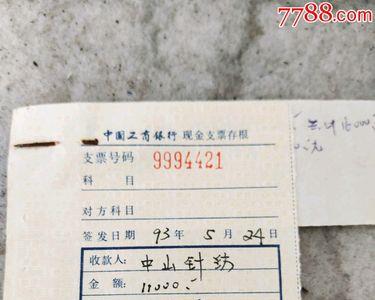 7788.com
中国工商银行 现金支票存根
支票号码 9994421
科 目
对方科目
签发日期 93 年 5 月 24 日
收款人: 中山针纺
金 额: 11000.